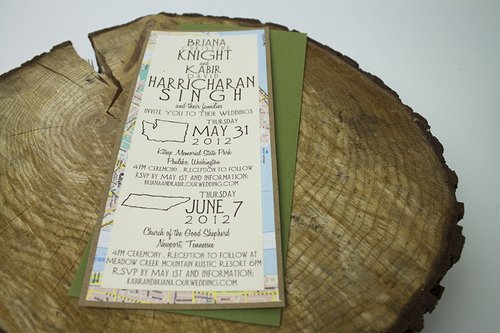 BRIANA
CHRISTINE
KNIGHT
and
KABIR
DAVID
HARRICHARAN
SINGH
and their families
INVITE YOU TO THEIR WEDDINGS
THURSDAY
MAY 31
2012
Kitsap Memorial State Park
Poulsbo, Washington
4PM CEREMONY . RECEPTION TO FOLLOW
RSVP BY MAY 1ST AND INFORMATION:
BRIANAANDKABIR.OURWEDDING.COM
THURSDAY
JUNE 7
2012
Church of the Good Shepherd
Newport, Tennessee
4PM CEREMONY . RECEPTION TO FOLLOW AT
MEADOW CREEK MOUNTAIN RUSTIC RESORT 6PM
RSVP BY MAY 1ST AND INFORMATION:
KABIRANDBRIANA.OURWEDDING.COM